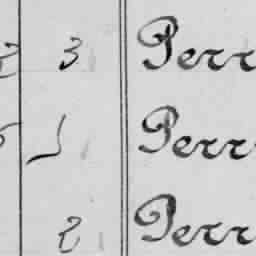 3 Perr
1 Perr
2 Perr